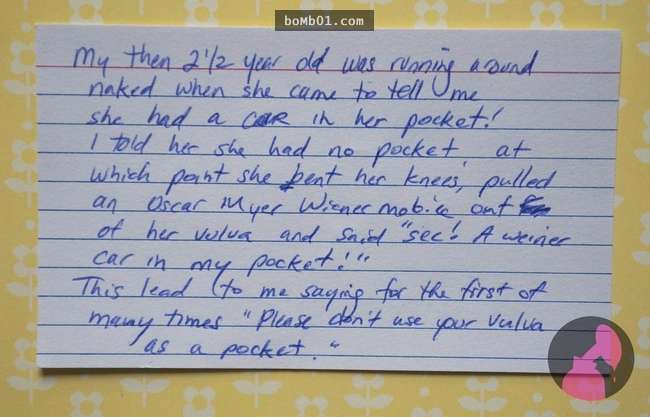 boMb01.com
My then 2 1/2 year old was running around
naked when she came to tell me
she had a CAR in her pocket!
I told her she had no pocket, at
which point she bent her knees, pulled
an Oscar Myer Wiener mobile out
of her vulva and said "see! A weiner
car in my pocket!"
This lead to me saying for the first of
many times "Please don't use your vulva
as a pocket."